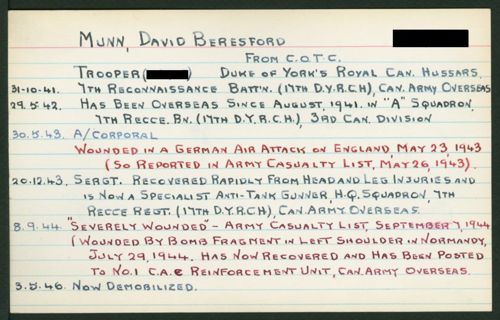 MUNN, DAVID BERESFORD
FROM C.O.T.C.
TROOPER ( ) DUKE OF YORK'S ROYAL CAN. HUSSARS.
31-10-41. 7TH RECONNAISSANCE BATT'N. (17TH D.Y.R.C.H), CAN. ARMY OVERSEAS
29.5.42. HAS BEEN OVERSEAS SINCE AUGUST, 1941. IN "A" SQUADRON,
7TH RECCE. BN. (17TH D.Y.R.C.H.), 3RD CAN. DIVISION
30.5.43. A/CORPORAL
WOUNDED IN A GERMAN AIR ATTACK ON ENGLAND, MAY 23, 1943
(SO REPORTED IN ARMY CASUALTY LIST, MAY 26, 1943).
20.12.43. SERGT. RECOVERED RAPIDLY FROM HEAD AND LEG INJURIES AND
IS NOW A SPECIALIST ANTI-TANK GUNNER, H.Q. SQUADRON, 7TH
RECCE REGT. (17TH D.Y.R.C.H), CAN. ARMY OVERSEAS.
8.9.44. "SEVERELY WOUNDED" - ARMY CASUALTY LIST, SEPTEMBER 7, 1944
(WOUNDED BY BOMB FRAGMENT IN LEFT SHOULDER IN NORMANDY,
JULY 29, 1944. HAS NOW RECOVERED AND HAS BEEN POSTED
TO NO.1 C.A.C REINFORCEMENT UNIT, CAN. ARMY OVERSEAS.
3.5.46. NOW DEMOBILIZED.